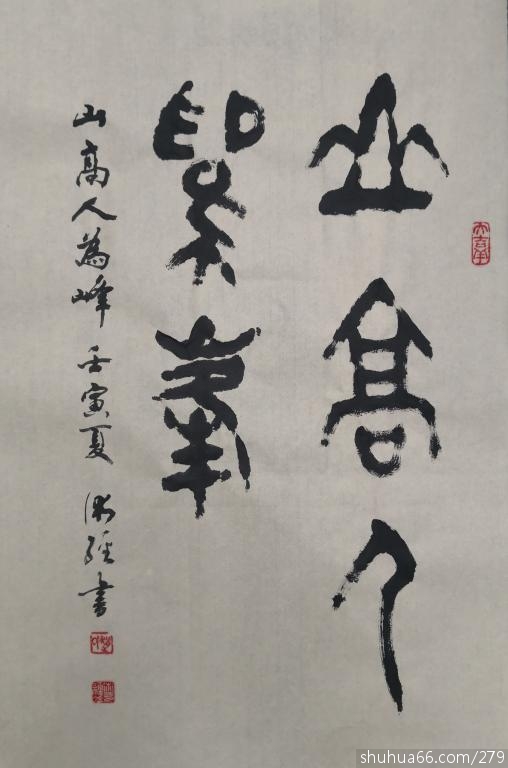 山高人
為峰
山高人為峰 壬寅夏 經書
shuhua66.com/279